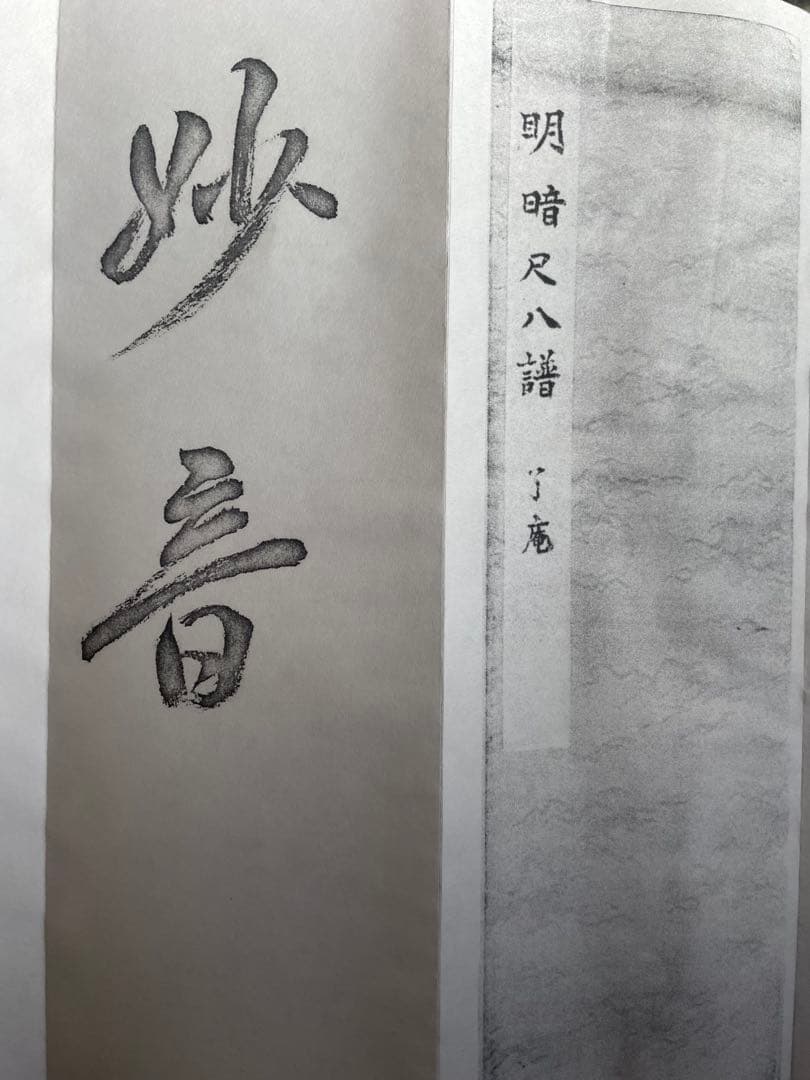 明暗尺八譜　了庵
妙音